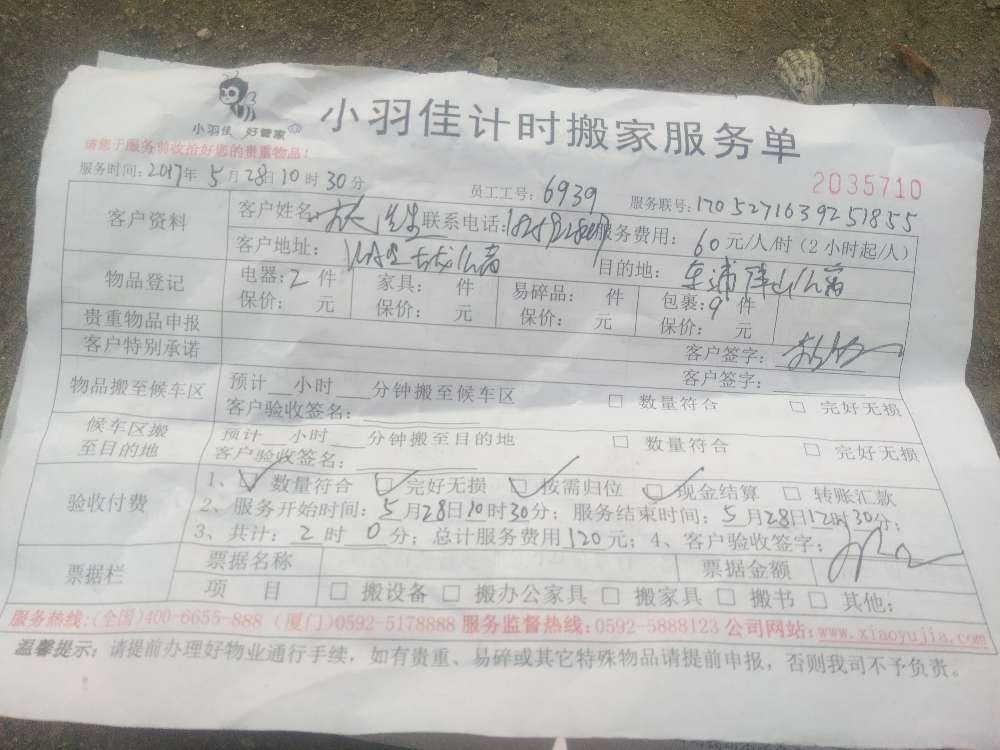 小羽佳 好管家
小羽佳计时搬家服务单
请您于服务前收拾好您的贵重物品!
2035710
服务时间:2017年5月28日10时30分 员工工号:6939 服务联号:1705271639251855
客户资料 客户姓名: 先生 联系电话: 服务费用:60元/人/时(2小时起/人)
客户地址: 公寓 目的地: 公寓
物品登记 电器:2件 家具: 件 易碎品: 件 包裹:9件
保价: 元 保价: 元 保价: 元 保价: 元
贵重物品申报 客户签字:
客户特别承诺 客户签字:
物品搬至候车区 预计__小时___分钟搬至候车区 □ 数量符合 □ 完好无损
客户验收签名:
候车区搬至目的地 预计__小时___分钟搬至目的地 □ 数量符合 □ 完好无损
客户验收签名:
验收付费 1、☑ 数量符合 ☑ 完好无损 ☑ 按需归位 ☑ 现金结算 □ 转账汇款
2、服务开始时间:5月28日10时30分;服务结束时间:5月28日12时30分;
3、共计:2时0分;总计服务费用120元;4、客户验收签字:
票据栏 票据名称 票据金额
项 目 □ 搬设备 □ 搬办公家具 □ 搬家具 □ 搬书 □ 其他:
服务热线:(全国)400-6655-888 (厦门)0592-5178888 服务监督热线:0592-5888123 公司网站:www.xiaoyujia.com
温馨提示:请提前办理好物业通行手续,如有贵重、易碎或其它特殊物品请提前申报,否则我司不予负责。